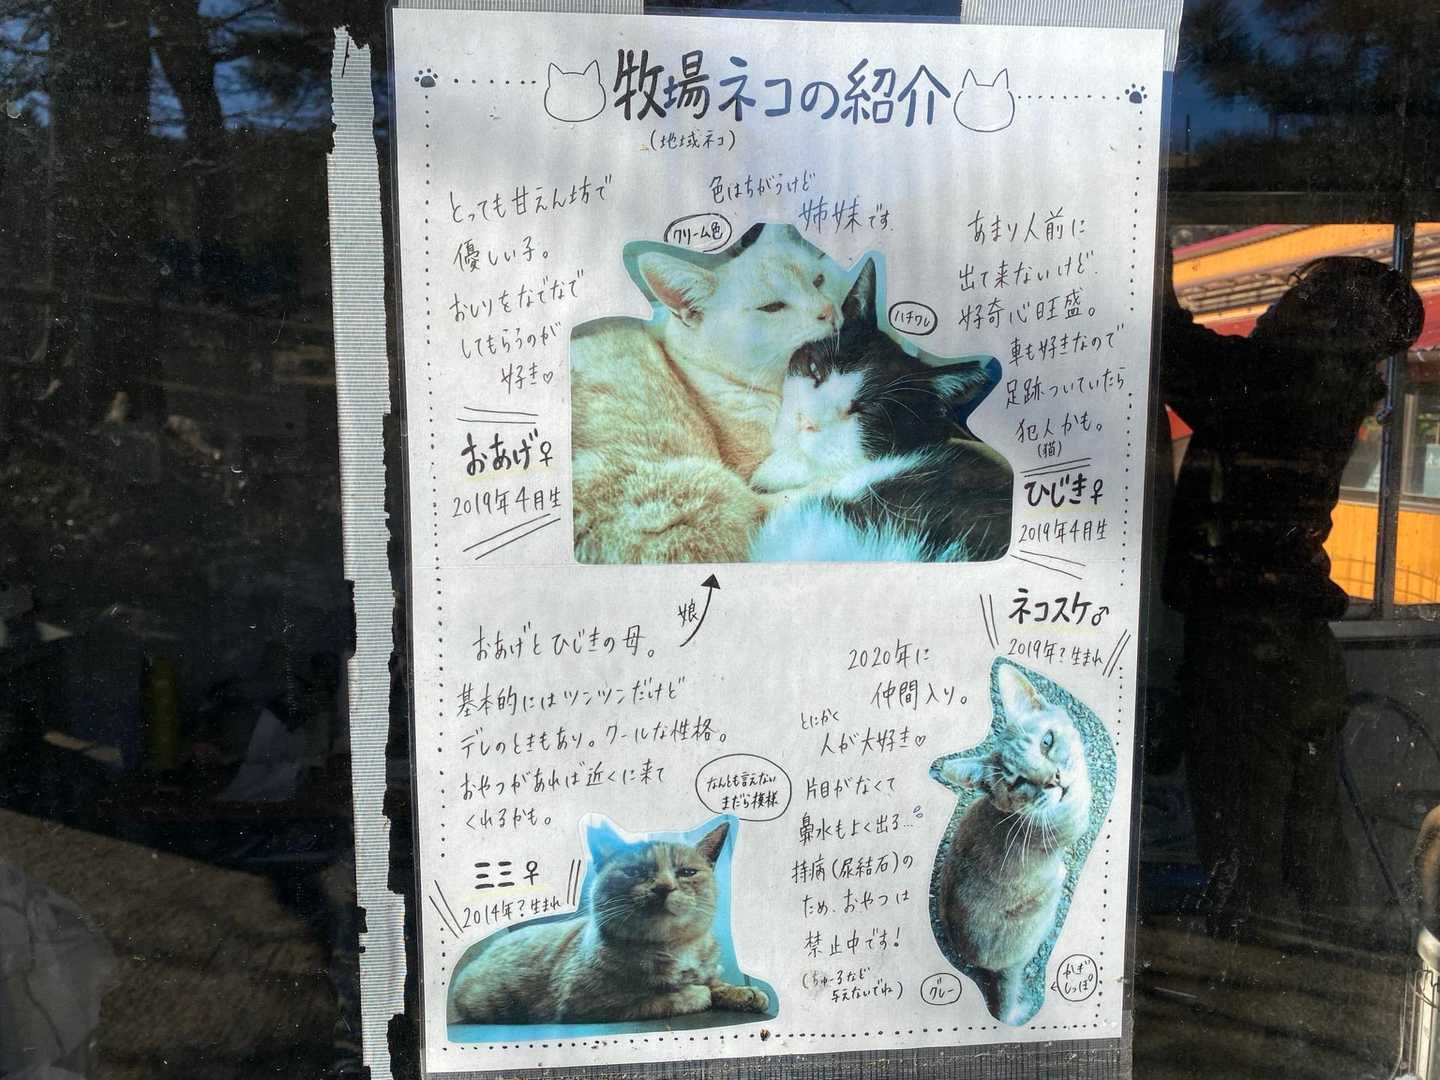 牧場ネコの紹介
(地域ネコ)
とっても甘えん坊で
優しい子。
おしりをなでなで
してもらうのが
好き♡
おあげ♀
2019年4月生
色はちがうけど
姉妹です
クリーム色
ハチワレ
あまり人前に
出て来ないけど、
好奇心旺盛。
車も好きなので
足跡ついていたら
犯人かも。
(猫)
ひじき♀
2019年4月生
娘
おあげとひじきの母。
基本的にはツンツンだけど
デレのときもあり。クールな性格。
おやつがあれば近くに来て
くれるかも。
なんとも言えない
まだら模様
ミミ♀
2014年?生まれ
ネコスケ♂
2019年?生まれ
2020年に
仲間入り。
とにかく
人が大好き♡
片目がなくて
鼻水もよく出る…
持病(尿結石)の
ため、おやつは
禁止中です!
(ちゅ~るなど
与えないでね)
グレー
かぎ
しっぽ